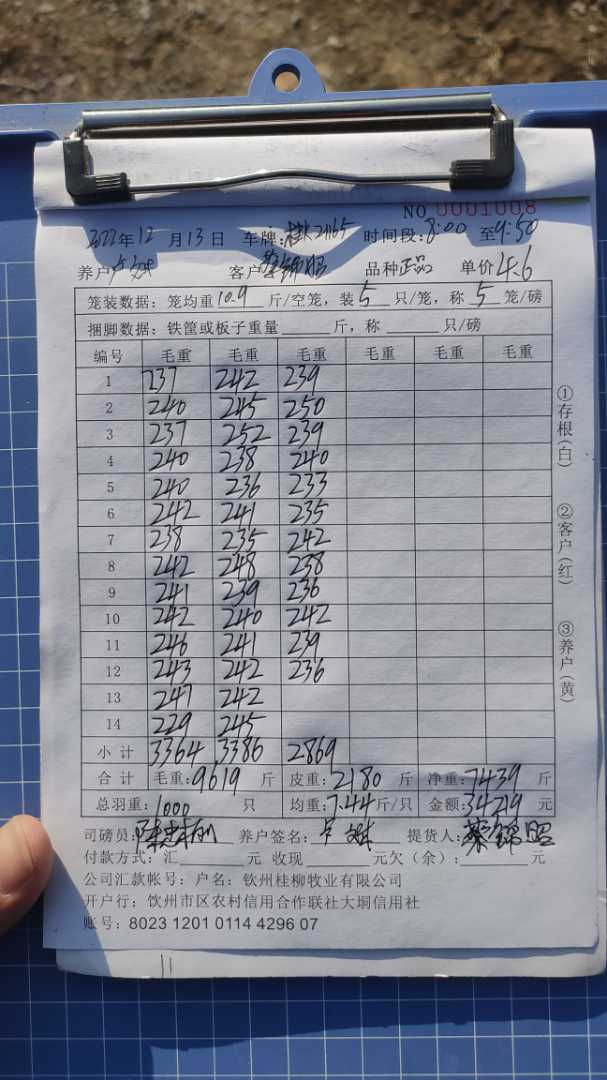 NO 0001008
2022年12月13日 车牌:桂 21165 时间段:8:00 至9:50
养户 客户:蔡锦昭 品种正品 单价4.6
笼装数据: 笼均重10.9斤/空笼, 装5只/笼, 称5笼/磅
捆脚数据: 铁筐或板子重量 斤, 称 只/磅
编号 毛重 毛重 毛重 毛重 毛重 毛重
1 237 242 239
2 240 245 250
3 237 252 239
4 240 238 240
5 240 236 233
6 242 241 235
7 238 235 242
8 242 248 238
9 241 239 236
10 242 240 242
11 246 241 239
12 243 242 236
13 247 242
14 229 245
小计 3364 3386 2869
合计 毛重:9619 斤 皮重:2180 斤 净重:7439 斤
总羽重: 1000 只 均重:7.44斤/只 金额:34219 元
司磅员: 养户签名: 提货人:蔡锦昭
付款方式: 汇 元 收现 元欠(余): 元
公司汇款帐号: 户名: 钦州桂柳牧业有限公司
开户行: 饮州市区农村信用合作联社大垌信用社
账号: 8023 1201 0114 4296 07
①存根(白)
②客户(红)
③养户(黄)